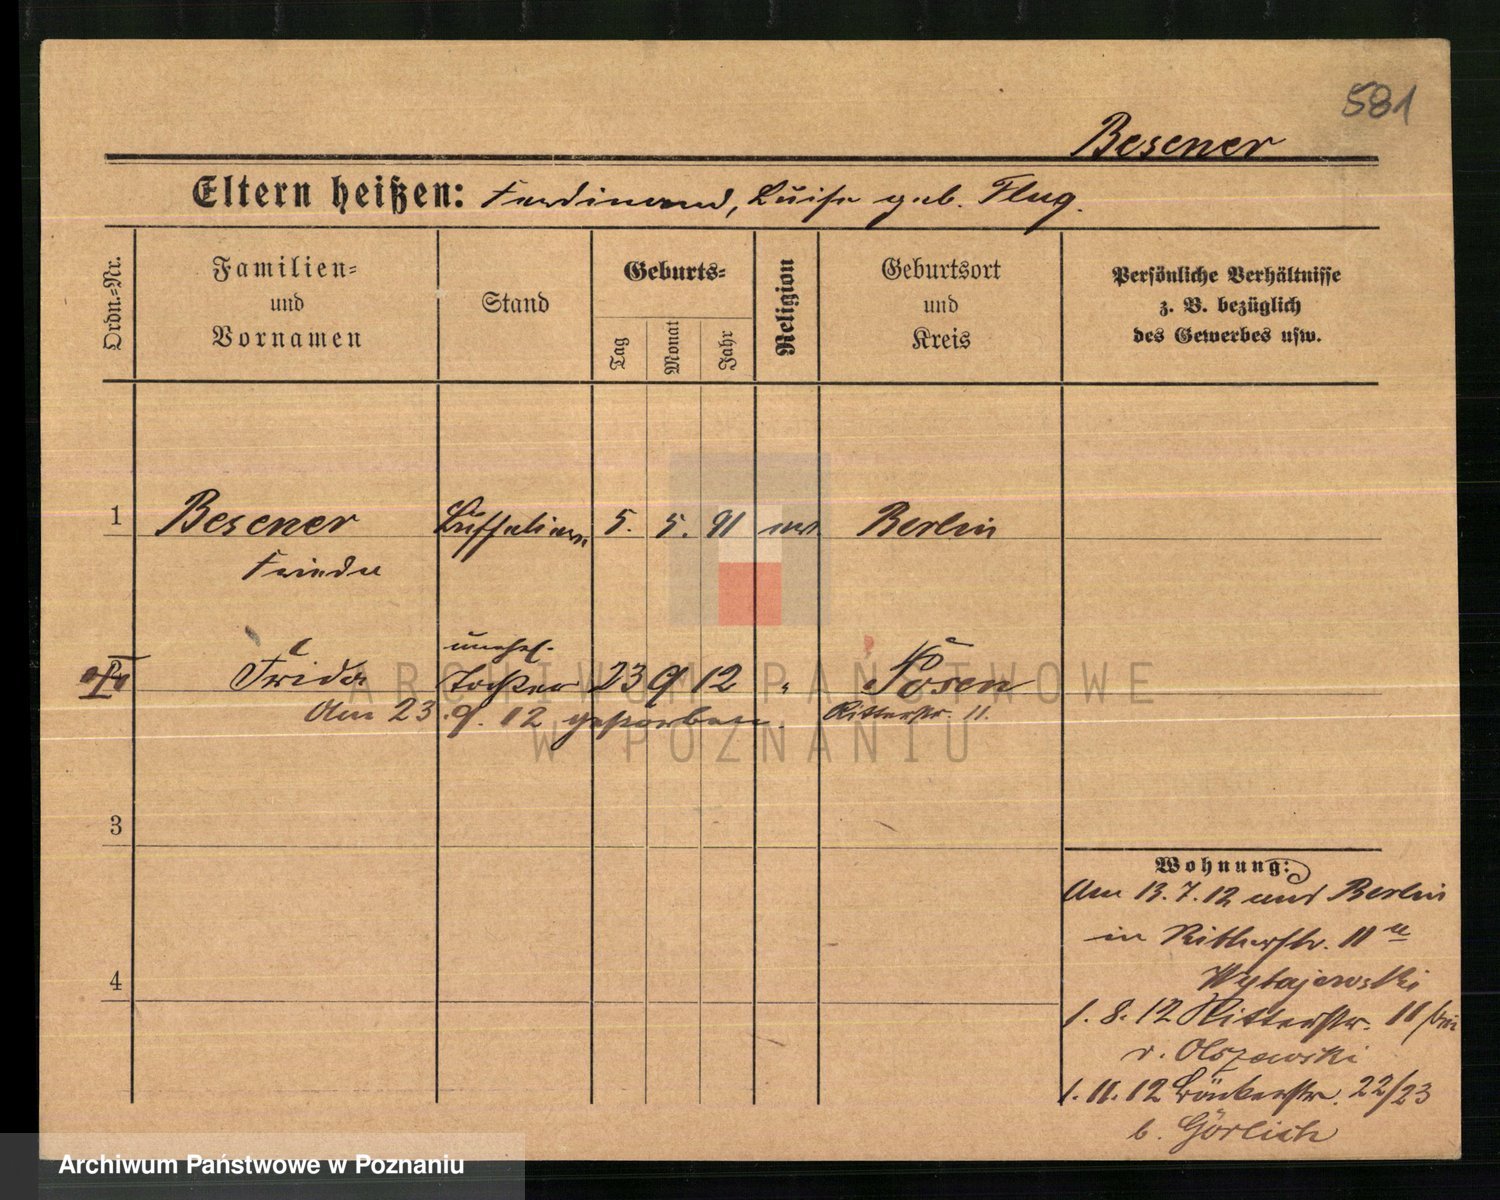 581
Besener
Eltern heißen: Ferdinand, Luise geb. Flug.
Ordn.-Nr.
Familien=
und
Vornamen
Stand
Geburts=
Tag
Monat
Jahr
Religion
Geburtsort
und
Kreis
Persönliche Verhältnisse
z. B. bezüglich
des Gewerbes usw.
1 Besener 5. 5. 91 Berlin
Frieda
unehel.
Frida Tochter 23 9 12 " Posen
Am 23.9.12 gestorben. Ritterstr. 11.
3
4
Wohnung:
Am 13.7.12 aus Berlin
in Ritterstr. 11
1.8.12 Ritterstr. 11 bei
v. Olszewski
1.11.12 Bäckerstr. 22/23
b. Görlich
ARCHIWUM PAŃSTWOWE
W POZNANIU
Archiwum Państwowe w Poznaniu